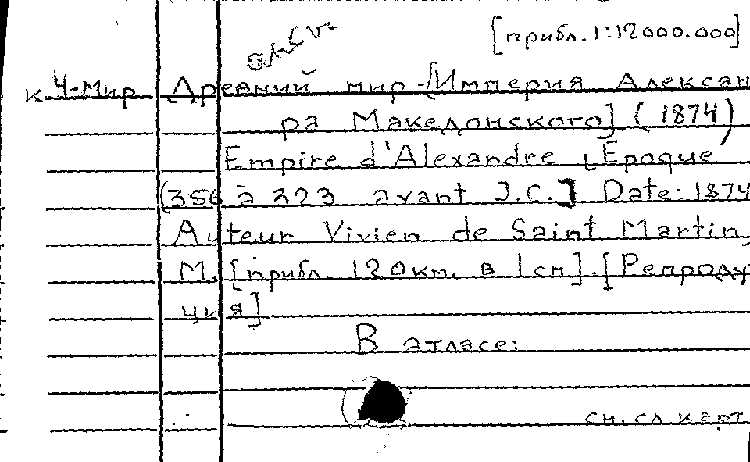 [прибл. 1:12000.000]
к 4-Мир Древний мир-[Империя Алексан
ра Македонского] (1874)
Empire d'Alexandre, Epoque
(356 à 323 avant J.C.] Date: 1874
Auteur Vivien de Saint Martin,
М. [прибл. 120км. в 1см]. [Репроду
ция]
В атласе:
см. сл. карт.